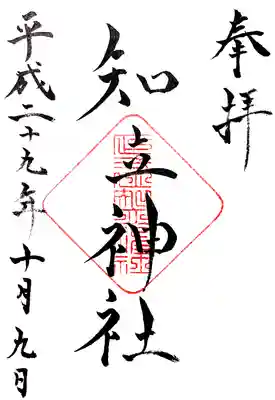 奉拝
知立神社
平成二十九年十月九日